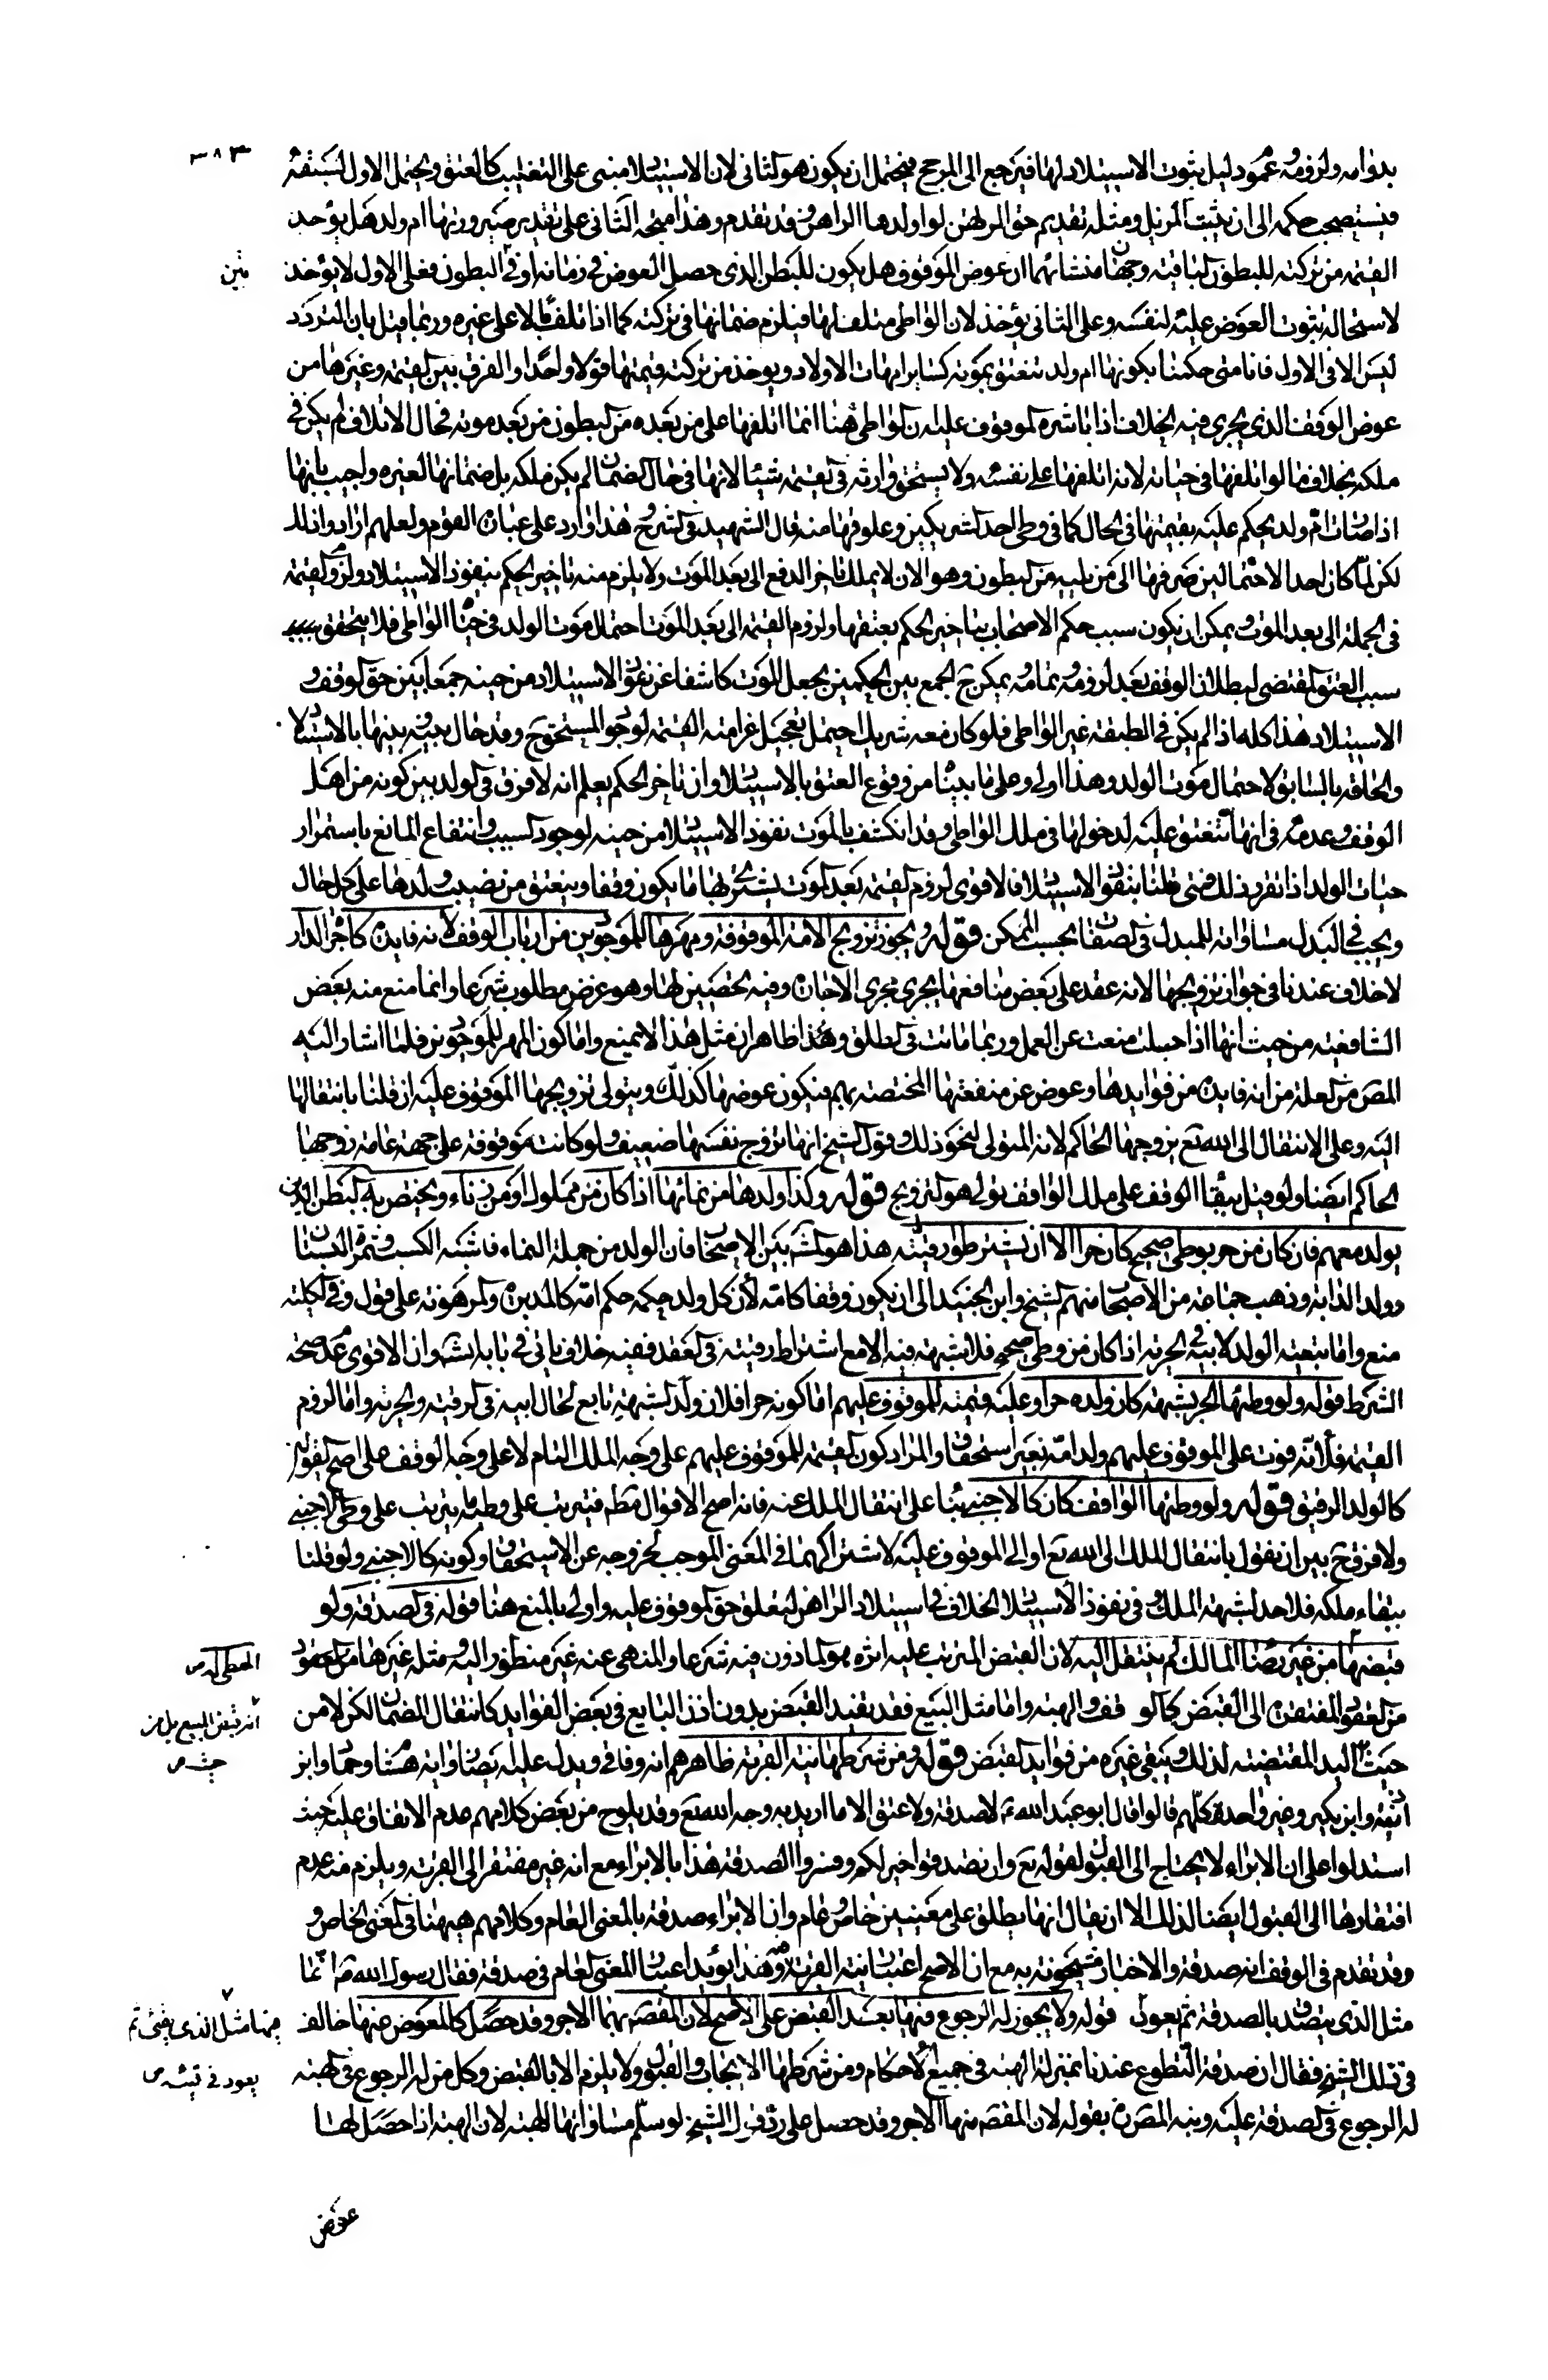 ٣٨٣
بدوامه ولزومه عموم دليل ثبوت الاستيلاد لها فيرجع الى المرجح فيحتمل ان يكون هو الثانى لان الاستيلاد مبنى على التغليب كالعتق ويحتمل الاول لسبقه
فيستصحب حكمه الى ان يثبت المزيل ومثله تقديم حق المرتهن لو اولدها الراهن وقد تقدم وهذا متجه الثانى على تقدير صيرورتها ام ولد هل يؤخذ
القيمة من تركته للبطون الباقية وجهان منشائهما ان عوض الموقوف هل يكون للبطن الذى حصل العوض فى زمانه او فى البطون فعلى الاول لا يؤخذ
لاستحالة ثبوت العوض عليه لنفسه وعلى الثانى يؤخذ لان الواطى متلف لها فيلزم ضمانها فى تركته كما اذا تلف مالا على غيره وربما قيل بان التردد
ليس الا فى الاول فانا متى حكمنا بكونها ام ولد تنعتق بموته كساير امهات الاولاد ويوخذ من تركته قيمتها قولا واحدا والفرق بين القيمة وغيرها من
عوض الوقف الذى يجرى فيه الخلاف اذا باشره الموقوف عليه ان الواطى هنا انما اتلفها على من بعده من البطون من بعد موته فحال الاتلاف لم يكن فى
ملكه بخلاف ما لو اتلفها فى حياته لانه اتلفها على نفسه ولا يستحق وارثه فى القيمة شيئا لانها فى حال الضمان لم يكن ملكه بل ضمانها لغيره واجيب بانها
اذا صارت ام ولد يحكم عليه بقيمتها فى الحال كما فى وطى احد الشريكين وعلوقها منه قال الشهيد فى الشرح هذا وارد على عبارة القوم ولعلهم ارادوا ذلك
لكن لما كان احد الاحتمالين صرفها الى من يليه من البطون وهو الان لا يملك تاخر الدفع الى بعد الموت ولا يلزم منه تاخير الحكم بنفوذ الاستيلاد ولزوم القيمة
فى الجملة الى بعد الموت ويمكن ان يكون سبب حكم الاصحاب بتاخير الحكم بعتقها ولزوم القيمة الى بعد الموت احتمال موت الولد فى حياة الواطى فلا يتحقق
سبب العتق المقتضى لبطلان الوقف بعد لزومه وتمامه يمكن ح الجمع بين الحكمين بجعل الموت كاشفا عن نفوذ الاستيلاد من حينه جمعا بين حق الوقف و
الاستيلاد هذا كله اذا لم يكن فى الطبقة غير الواطى فلو كان معه شريك احتمل تعجيل غرامته القيمة لوجود المستحق ح وقد حال بينه وبينها بالاستيلاد
والحاقه بالسابق لاحتمال موت الولد وهذا اولى وعلى ما بيناه من وقوع العتق بالاستيلاد وان تاخر الحكم يعلم انه لا فرق فى الولد بين كونه من اهل
الوقف وعدمه فى انها تنعتق عليه لدخولها فى ملك الواطى وقد انكشف بالموت نفوذ الاستيلاد من حينه لوجود السبب وانتفاء المانع باستمرار
حيات الولد اذا تقرر ذلك فمتى قلنا بنفوذ الاستيلاد فالاقوى لزوم القيمة بعد الموت يشترى بها ما يكون وقفا وينعتق من نصيب ولدها على كل حال
ويجب فى البدل مساواته للمبدل فى الصفات بحسب الممكن قوله ويجوز تزويج الامة الموقوفة ومهرها للموجودين من ارباب الوقف لانه فايدة كاجرة الدار
لا خلاف عندنا فى جواز تزويجها لانه عقد على بعض منافعها يجرى مجرى الاجارة وفيه تحصين لها وهو غرض مطلوب شرعا وانما منع منه بعض
الشافعية من حيث انها اذا حبلت منعت عن العمل وربما ماتت فى الطلق وهذا ظاهر ان مثل هذا لا يمنع واما كون المهر للموجودين فلما اشار اليه
المص من العلة من انه فايدة من فوايدها وعوض عن منفعتها المختصة بهم فيكون عوضها كذلك ويتولى تزويجها الموقوف عليه ان قلنا بانتقالها
اليه وعلى الانتقال الى الله تع يزوجها الحاكم لانه المتولى لنحو ذلك وقول الشيخ انها تزوج نفسها ضعيف ولو كانت موقوفة على جهة عامة زوجها
الحاكم ايضا ولو قيل ببقاء الوقف على ملك الواقف تولى هو التزويج قوله وكذا ولدها من نمائها اذا كان من مملوك او من زناء ويختص به البطن الذين
يولد معهم فان كان من حر بوطى صحيح كان حرا الا ان يشترطوا رقيته هذا هو المشهور بين الاصحاب فان الولد من جملة النماء فاشبه الكسب وثمرة البستان
وولد الدابة وذهب جماعة من الاصحاب منهم الشيخ وابن الجنيد الى ان يكون وقفا كامه لان كل ولد حكمه حكم امه كالمدبرة والمرهونة على قول وفى الكلية
منع واما تبعية الولد لابيه فى الحرية اذا كان من وطى صحيح فلا شبهة فيه الا مع اشتراط رقيته فى العقد ففيه خلاف ياتى فى بابه انشه وان الاقوى عدم صحة
الشرط قوله ولو وطئها الحر بشبهة كان ولده حرا وعليه قيمته للموقوف عليهم اما كونه حرا فلان ولد الشبهة تابع لحال ابيه فى الرقية والحرية واما لزوم
القيمة فلانه فوت على الموقوف عليهم ولد امته بغير استحقاق والمراد كون القيمة للموقوف عليهم على وجه الملك التام لا على وجه الوقف على اصح القولين
كالولد الرقيق قوله ولو وطئها الواقف كان كالاجنبى بناء على انتقال الملك عنه فانه اصح الاقوال مط فيترتب على وطيه ما يترتب على وطى الاجنبى
ولا فرق ح بين ان نقول بانتقال الملك الى الله تع او الى الموقوف عليه لاشتراكهما فى المعنى الموجب لخروجه عن الاستحقاق وكونه كالاجنبى ولو قلنا
ببقاء ملكه فلا حد لشبهة الملك وفى نفوذ الاستيلاد الخلاف فى استيلاد الراهن لتعلق حق الموقوف عليه واولى بالمنع هنا قوله فى الصدقة ولو
قبضها من غير رضا المالك لم ينتقل اليه لان القبض المترتب عليه اثره هو الماذون فيه شرعا والمنهى عنه غير منظور اليه ومثله غيرها من العقود
من العقود المفتقرة الى القبض كالوقف والهبة واما مثل البيع فقد يفيد القبض بدون اذن البايع فى بعض الفوايد كانتقال الضمان لكن لا من
حيث اليد المقتضية لذلك ويبقى غيره من فوايد القبض قوله ومن شرطها نية القربة ظاهرهم انه وفاقى ويدل عليه ايضا رواية هشام وحماد وابن
اذينة وابن بكير وغير واحدة كلهم قالوا قال ابو عبد الله ع لا صدقة ولا عتق الا ما اريد به وجه الله تع وقد يلوح من بعض كلامهم عدم الاتفاق عليه حيث
استدلوا على ان الابراء لا يحتاج الى القبول لقوله تع وان تصدقوا خير لكم وفسروا الصدقة هذا بالابراء مع انه غير مفتقر الى القربة ويلزم منه عدم
افتقارها الى القبول ايضا لذلك الا ان يقال انها يطلق على معنيين خاص وعام وان الابراء صدقة بالمعنى العام وكلامهم هيهنا فى المعنى الخاص و
وقد تقدم فى الوقف انه صدقة والاخبار مشحونة به مع ان الاصح اعتبار نية القربة وهذا يؤيد اعتبار المعنى العام فى صدقة فقال رسول الله ص انما
مثل الذى يتصدق بالصدقة ثم يعود قوله ولا يجوز له الرجوع فيها بعد القبض على الاصح لان المقصود بها الاجر وقد حصل كالمعوض عنها خالف
فى ذلك الشيخ فقال ان صدقة التطوع عندنا بمنزلة الهبة فى جميع الاحكام ومن شرطها الايجاب والقبول ولا يلزم الا بالقبض وكل من له الرجوع فى الهبة
له الرجوع فى الصدقة عليه ونبه المصره بقوله لان المقصود منها الاجر وقد حصل على رد قول الشيخ لو سلم مساواتها للهبة لان الهبة اذا حصل لها
المعطى له ص
انه قبض المبيع بل من
حيث ص
فيها مثل الذى يقئ ثم
يعود فى قيئه ص
عوض